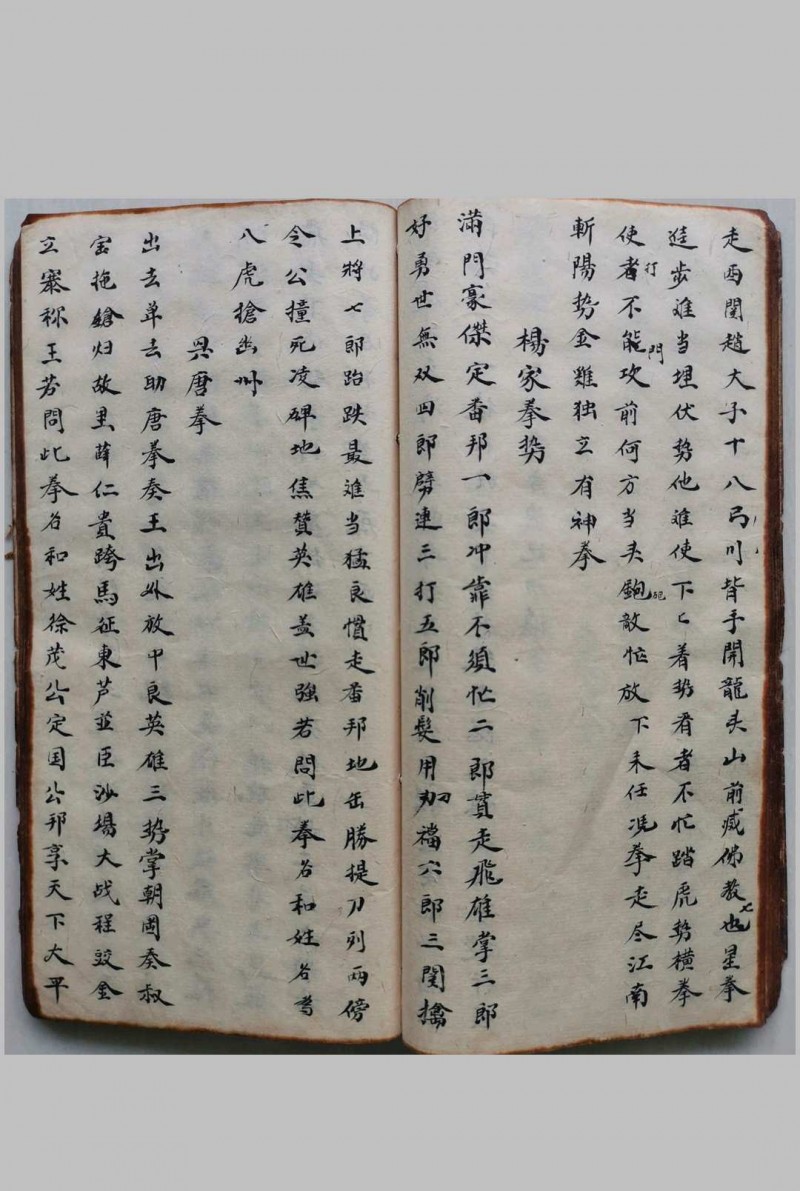 走西関趙大子十八弓川背手開龍头山前感佛教七也星拳
進步难当埋伏势他难使下〻着势看者不忙踏虎势横拳
使者打不能攻門前何方当夹鉋敵忙放下未任况拳走尽江南
斬陽势金雞独立有神拳
楊家拳势
滿門豪傑定番邦一郎冲靠不須忙二郎貫走飛雄掌三郎
好勇世無双四郎劈連三打五郎削髮用襠六郎三関擒
上將七郎跆跌最难当猛良慣走番邦地岳勝提刀列兩傍
令公撞死凌碑地焦贊英雄盖世強若問此拳名和姓名為
八虎搶幽州
興唐拳
出去単去助唐拳秦王出外放中良英雄三势掌朝岡秦叔
宝拖鎗归故里薛仁貴跨馬征東芦並臣沙場大战程咬金
立寨称王若問此拳名和姓徐茂公定国公邦享天下大平